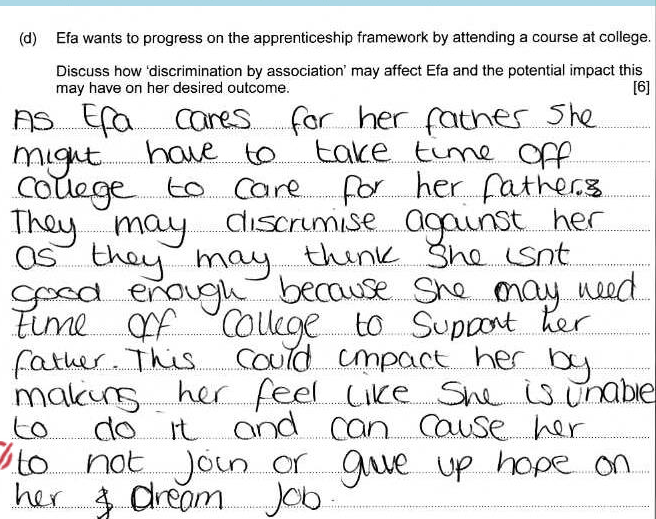 (d) Efa wants to progress on the apprenticeship framework by attending a course at college.
Discuss how 'discrimination by association' may affect Efa and the potential impact this
may have on her desired outcome. [6]
As Efa cares for her father she
might have to take time off
college to care for her father.
They may discrimise against her
as they may think she isnt
good enough because she may need
time off college to support her
father. This could impact her by
making her feel like she is unable
to do it and can cause her
to not join or give up hope on
her dream job.